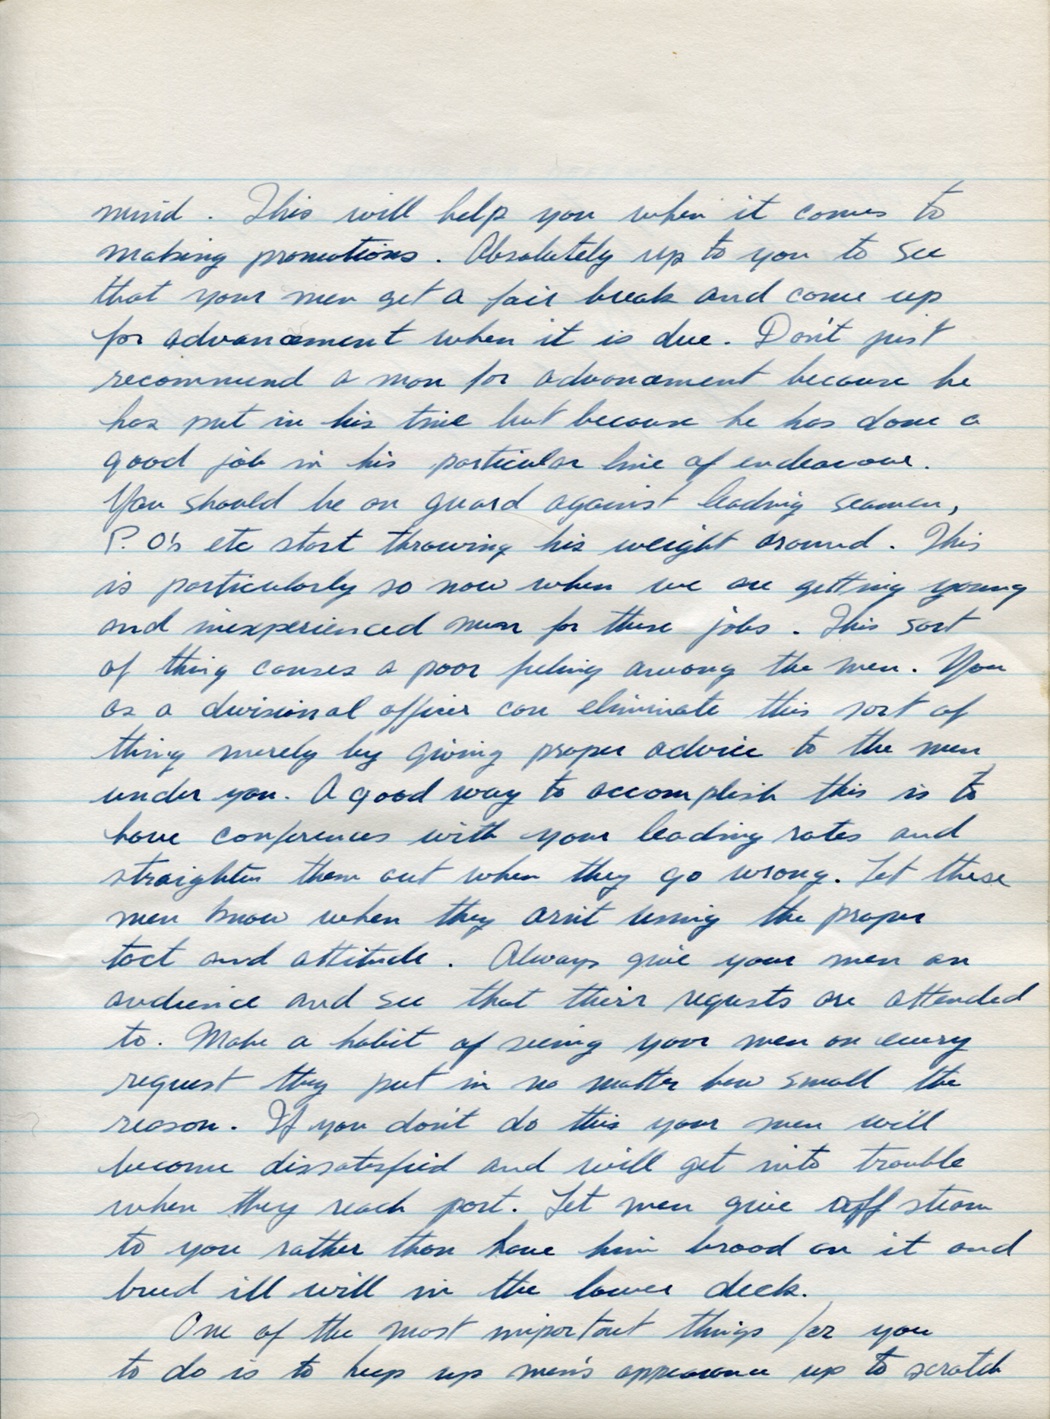 mind. This will help you when it comes to
making promotions. Absolutely up to you to see
that your men get a fair break and come up
for advancement when it is due. Don't just
recommend a man for advancement because he
has put in his time but because he has done a
good job in his particular line of endeavour.
You should be on guard against leading seamen,
P.O's etc start throwing his weight around. This
is particularly so now when we are getting young
and inexperienced men for these jobs. This sort
of thing causes a poor feeling among the men. You
as a divisional officer can eliminate this sort of
thing merely by giving proper advice to the men
under you. A good way to accomplish this is to
have conferences with your leading rates and
straighten them out when they go wrong. Let these
men know when they arn't using the proper
tact and attitude. Always give your men an
audience and see that their requests are attended
to. Make a habit of seeing your men on every
request they put in no matter how small the
reason. If you don't do this your men will
become dissatisfied and will get into trouble
when they reach port. Let men give off steam
to you rather than have him brood on it and
breed ill will in the lower deck.
One of the most important things for you
to do is to keep up men's appearance up to scratch